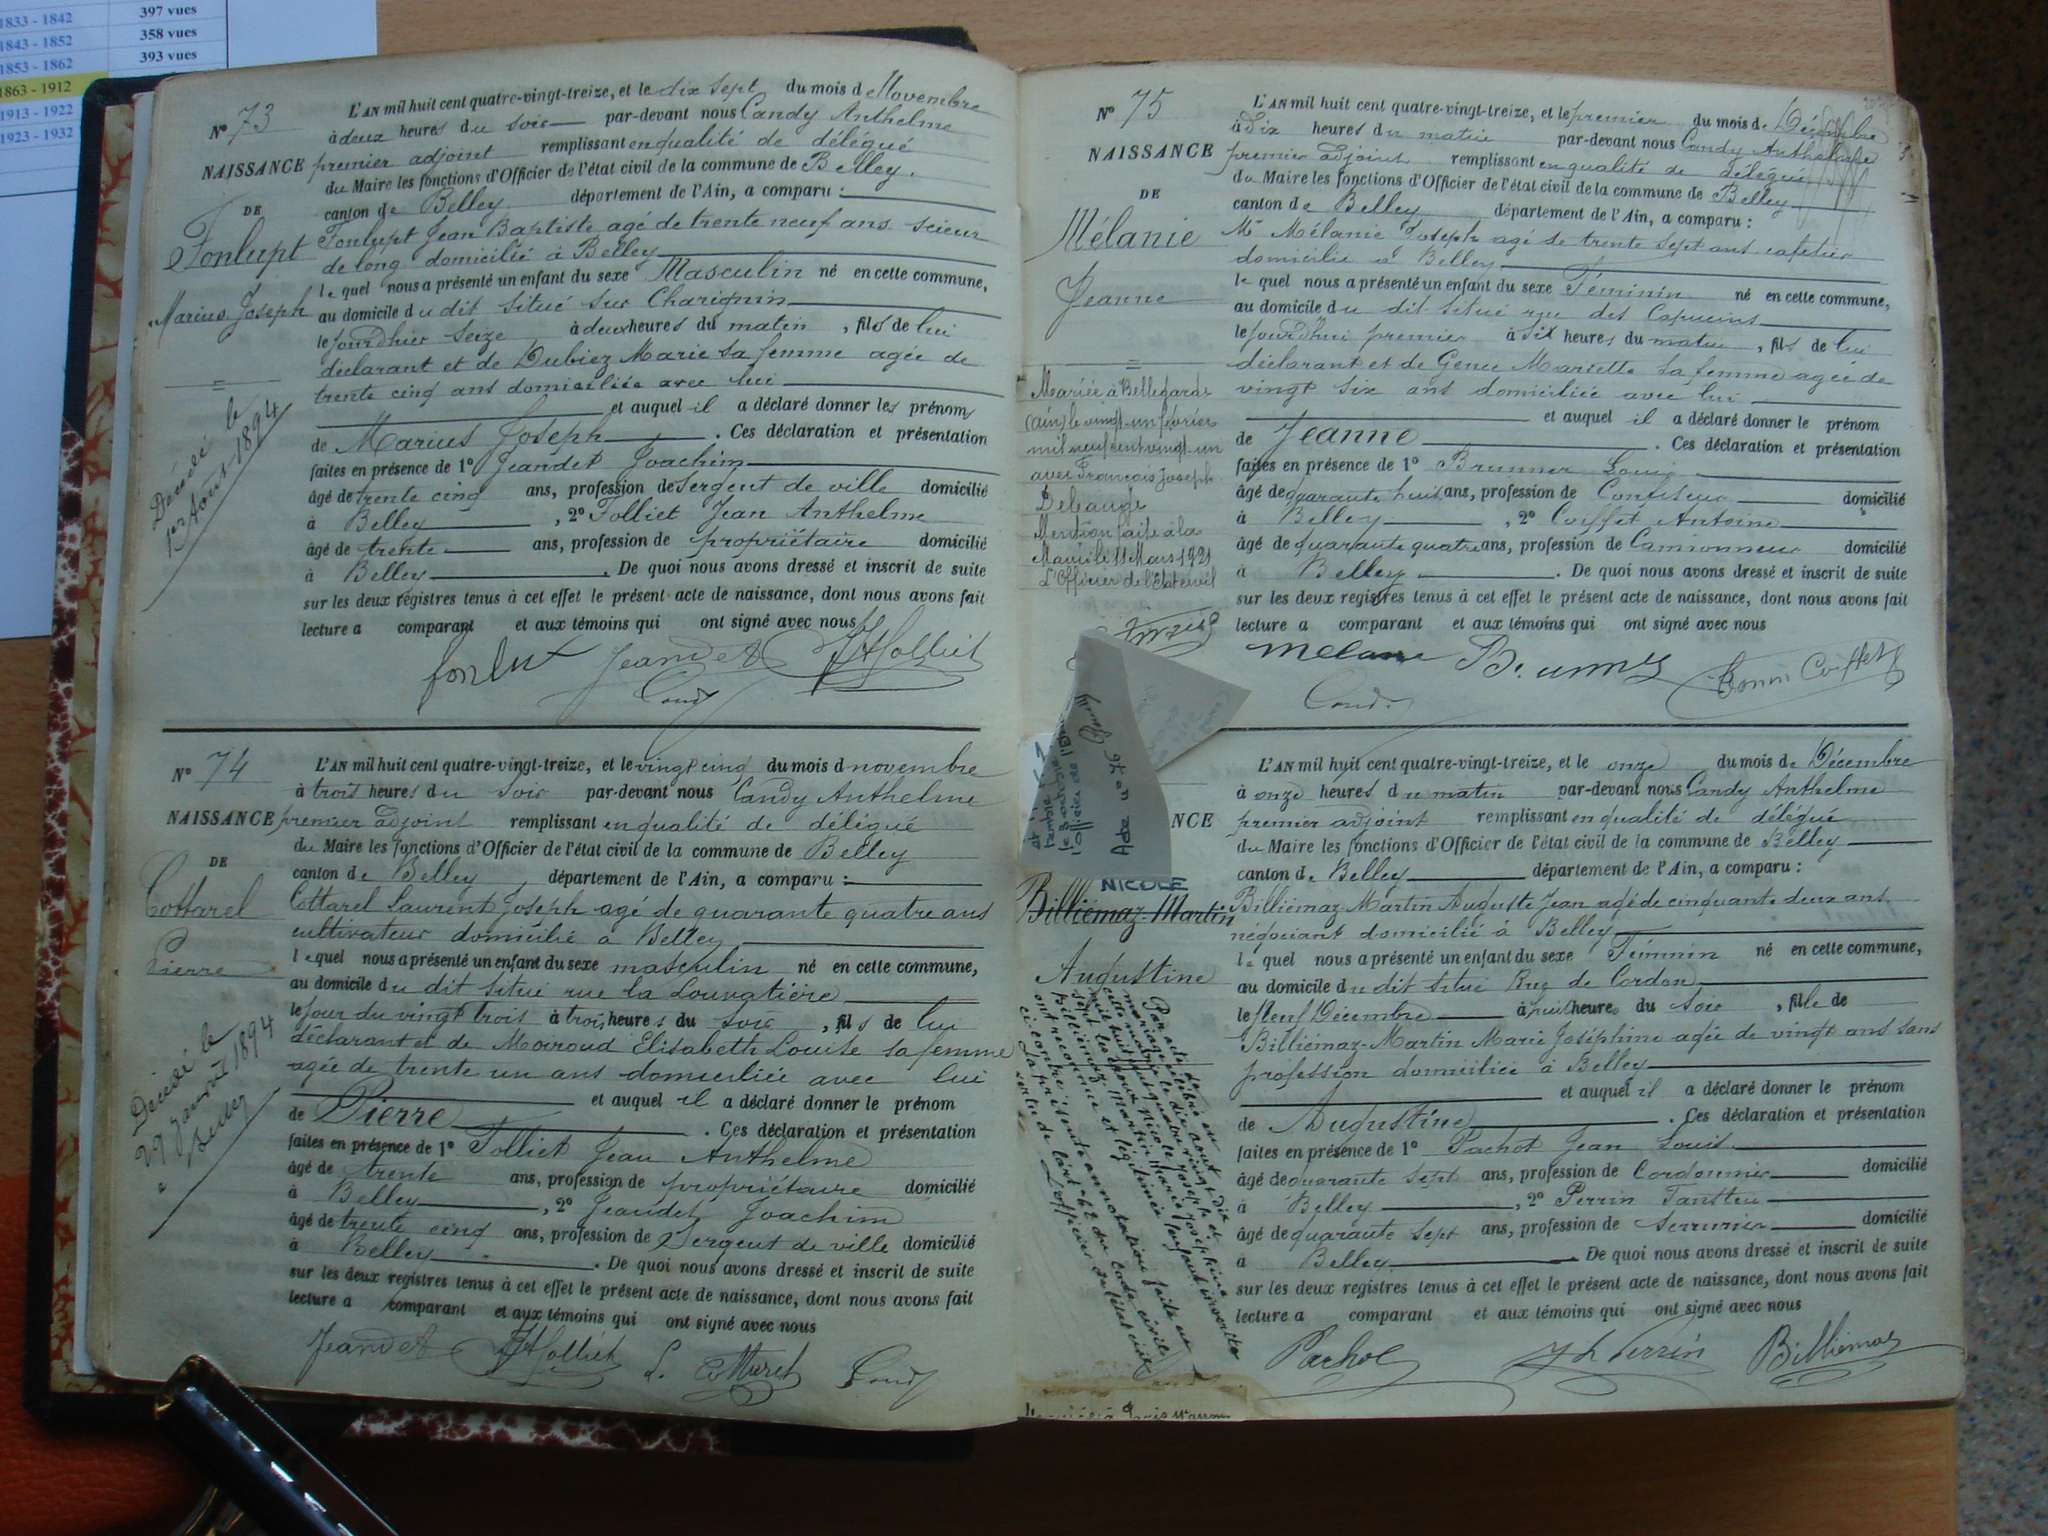 1833 - 1842 397 vues
1843 - 1852 358 vues
1853 - 1862 393 vues
1863 - 1912
1913 - 1922
1923 - 1932
N° 73
NAISSANCE
DE
Fonlupt
Marius Joseph
Décédé le
1er Août 1894
L'AN mil huit cent quatre-vingt-treize, et le dix sept du mois de Novembre
à deux heures du soir par-devant nous Candy Anthelme
premier adjoint remplissant en qualité de délégué
du Maire les fonctions d'Officier de l'état civil de la commune de Belley.
canton de Belley département de l'Ain, a comparu :
Fonlupt Jean Baptiste agé de trente neuf ans scieur
de long domicilié à Belley
lequel nous a présenté un enfant du sexe Masculin né en cette commune,
au domicile du dit situé sur Charignin
le jourd'hier seize à deux heures du matin, fils de lui
déclarant et de Dubiez Marie sa femme agée de
trente cinq ans domiciliée avec lui
et auquel il a déclaré donner les prénoms
de Marius Joseph. Ces déclaration et présentation
faites en présence de 1° Jeandet Joachim
âgé de trente cinq ans, profession de Sergent de ville domicilié
à Belley, 2° Tolliet Jean Anthelme
âgé de trente ans, profession de propriétaire domicilié
à Belley. De quoi nous avons dressé et inscrit de suite
sur les deux registres tenus à cet effet le présent acte de naissance, dont nous avons fait
lecture a comparant et aux témoins qui ont signé avec nous
fonlut Jeandet JATolliet
Candy
N° 74
NAISSANCE
DE
Cottarel
Pierre
Décédé le
29 Janvier 1894
à Belley
L'AN mil huit cent quatre-vingt-treize, et le vingt cinq du mois d novembre
à trois heures du soir par-devant nous Candy Anthelme
premier adjoint remplissant en qualité de délégué
du Maire les fonctions d'Officier de l'état civil de la commune de Belley
canton de Belley département de l'Ain, a comparu :
Cottarel Laurent Joseph agé de quarante quatre ans
cultivateur domicilié à Belley
lequel nous a présenté un enfant du sexe masculin né en cette commune,
au domicile du dit situé rue la Louvatière
le jour du vingt trois à trois heures du soir, fils de lui
déclarant et de Moiroud Elisabeth Louise sa femme
agée de trente un ans domiciliée avec lui
et auquel il a déclaré donner le prénom
de Pierre. Ces déclaration et présentation
faites en présence de 1° Tolliet Jean Anthelme
âgé de trente ans, profession de propriétaire domicilié
à Belley, 2° Jeandet Joachim
âgé de trente cinq ans, profession de Sergent de ville domicilié
à Belley. De quoi nous avons dressé et inscrit de suite
sur les deux registres tenus à cet effet le présent acte de naissance, dont nous avons fait
lecture a comparant et aux témoins qui ont signé avec nous
Jeandet JATolliet L. Candy
N° 75
NAISSANCE
DE
Mélanie
Jeanne
Mariée à Bellegarde
(Ain) le vingt-un février
mil neuf cent vingt-un
avec François Joseph
Debauge
Mention faite à la
Mairie le 11 Mars 1921
L'Officier de l'Etat civil
L'AN mil huit cent quatre-vingt-treize, et le premier du mois de Décembre
à dix heures du matin par-devant nous Candy Anthelme
premier adjoint remplissant en qualité de délégué
du Maire les fonctions d'Officier de l'état civil de la commune de Belley
canton de Belley département de l'Ain, a comparu :
Mr Mélanie Joseph agé de trente sept ans cafetier
domicilié à Belley
lequel nous a présenté un enfant du sexe Féminin né en cette commune,
au domicile du dit situé rue des Capucins
le jourd'hui premier à six heures du matin, fils de lui
déclarant et de Mariette sa femme agée de
vingt six ans domiciliée avec lui
et auquel il a déclaré donner le prénom
de Jeanne. Ces déclaration et présentation
faites en présence de 1° Brunner Louis
âgé de quarante huit ans, profession de Confiseur domicilié
à Belley, 2° Coiffet Antoine
âgé de quarante quatre ans, profession de Camionneur domicilié
à Belley. De quoi nous avons dressé et inscrit de suite
sur les deux registres tenus à cet effet le présent acte de naissance, dont nous avons fait
lecture a comparant et aux témoins qui ont signé avec nous
Coiffet
Candy
Acte no 76
l'officier
NCE
NICOLE
Billiémaz-Martin
Augustine
L'AN mil huit cent quatre-vingt-treize, et le onze du mois de Décembre
à onze heures du matin par-devant nous Candy Anthelme
premier adjoint remplissant en qualité de délégué
du Maire les fonctions d'Officier de l'état civil de la commune de Belley
canton de Belley département de l'Ain, a comparu :
Billiémaz-Martin Auguste Jean agé de cinquante deux ans,
négociant domicilié à Belley
lequel nous a présenté un enfant du sexe Féminin né en cette commune,
au domicile du dit situé Rue de Cordon
le Neuf Décembre à huit heures du soir, fille de
Billiémaz-Martin Marie Joséphine agée de vingt ans sans
profession domiciliée à Belley
et auquel il a déclaré donner le prénom
de Augustine. Ces déclaration et présentation
faites en présence de 1° Pachot Jean Louis
âgé de quarante sept ans, profession de Cordonnier domicilié
à Belley, 2° Perrin
âgé de quarante sept ans, profession de Serrurier domicilié
à Belley. De quoi nous avons dressé et inscrit de suite
sur les deux registres tenus à cet effet le présent acte de naissance, dont nous avons fait
lecture a comparant et aux témoins qui ont signé avec nous
Pachot Perrin Billiémaz